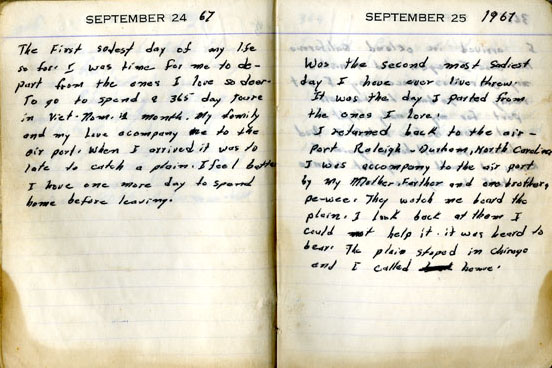 SEPTEMBER 24 67
The First sadest day of my life
so far. I was time for me to de-
part from the ones I love so dear.
To go to spend a 365 day toure
in Viet-Nam. month. My family
and my Love acompany me to the
air port. When I arrived it was to
late to catch a plain. I feel better
I have one more day to spend
home before leaving.
SEPTEMBER 25 1967
Was the second most sadiest
day I have ever live threw.
It was the day I parted from
the ones I love.
I returned back to the air-
Port Raleigh - Durham, North Carolina
I was accompany to the air port
by my Mother, Farther and one brother,
pe-wee. They watch me board the
plain. I look back at them I
could not help it. it was heard to
bear. The plain stoped in Chicago
and I called home.